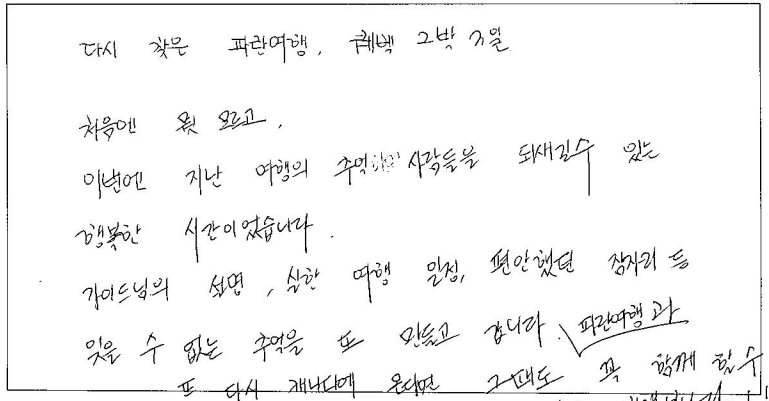 다시 찾은 파란여행, 퀘벡 2박 3일
처음엔 뭣 모르고,
이번엔 지난 여행의 추억 사람들을 되새길수 있는
행복한 시간이었습니다.
가이드님의 설명, 실한 여행 일정, 편안했던 잠자리 등
잊을 수 없는 추억을 또 만들고 갑니다. 파란여행과
또 다시 캐나다에 온다면 그때도 꼭 함께 할 수